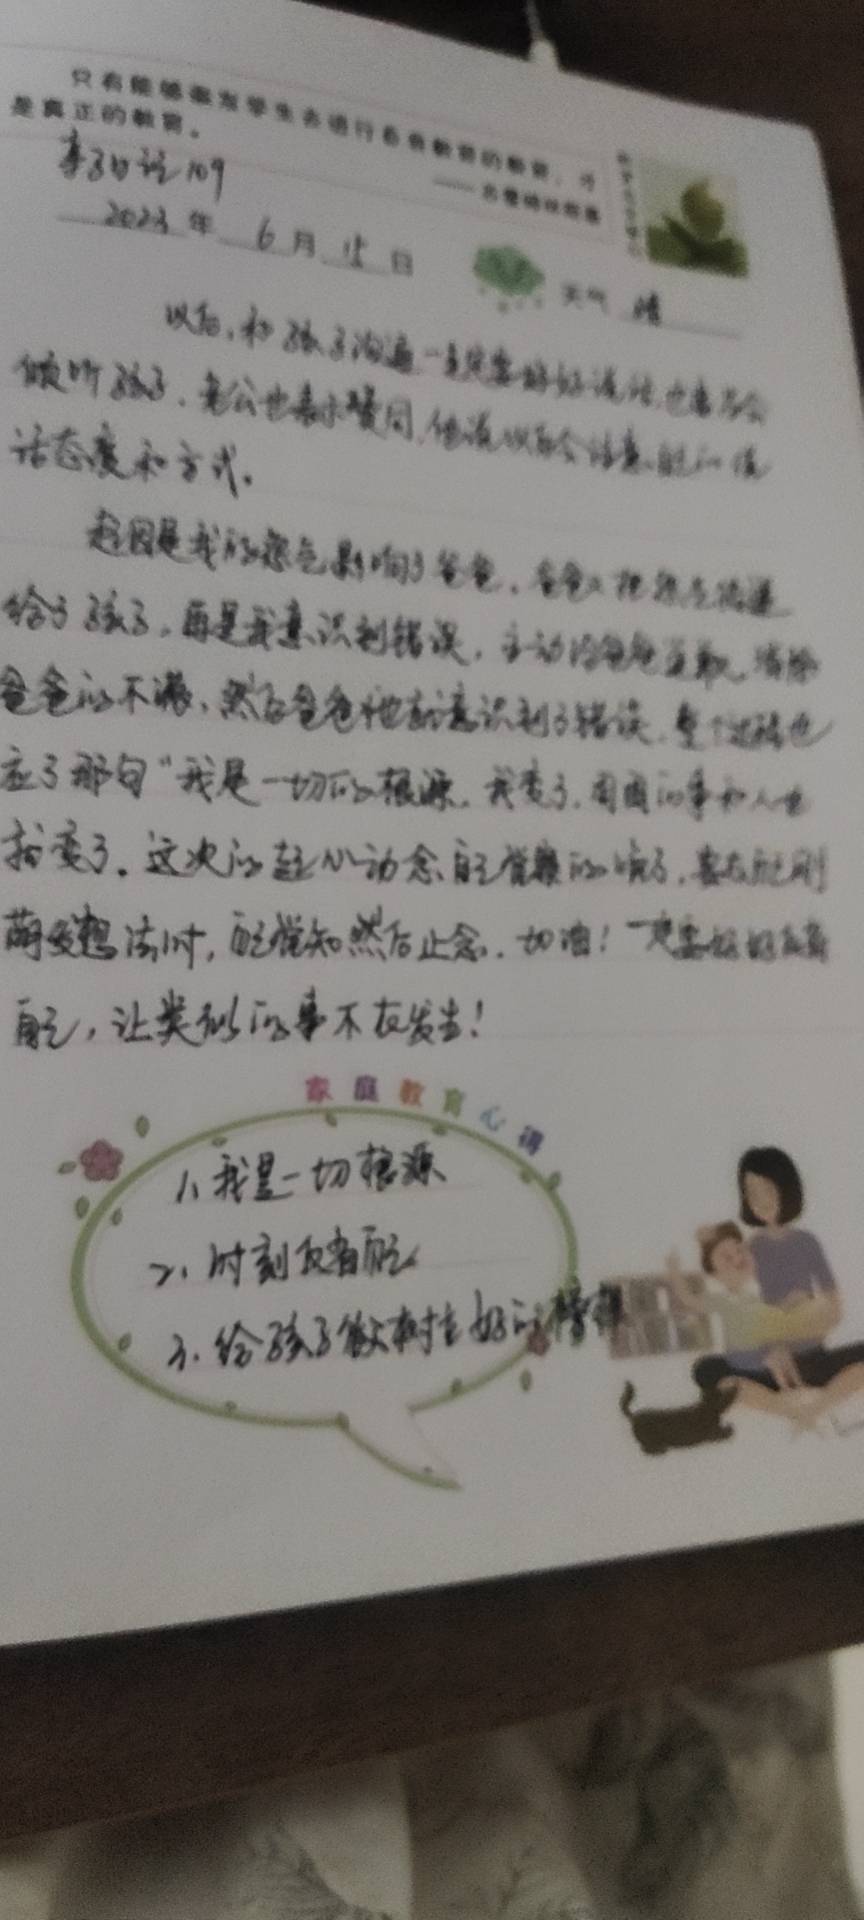 只有能够激发学生去进行自我教育的教育，才
是真正的教育。
——苏霍姆林斯基
亲子日记109
2023年 6月 15日 天气 晴
以后，和孩子沟通一定要好好说话，也要学会
倾听孩子，老公也表示赞同，他说以后会注意自己的说
话态度和方式。
起因是我的怨气影响了爸爸，爸爸又把怨气传递
给了孩子，再是我意识到错误，主动给爸爸道歉，消除
爸爸的不满，然后爸爸他也意识到了错误，整个过程也
应了那句“我是一切的根源，我变了，周围的事和人也
就变了。这次的起心动念自己觉察的晚了，要在自己刚
萌发想法时，自己觉知然后止念，加油！一定要好好
自己，让类似的事不在发生！
家庭教育心得
1、我是一切根源
2、时刻反省自己
3、给孩子做好的榜样